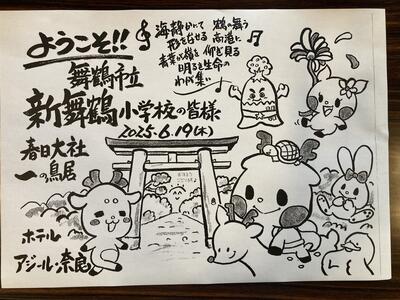 ようこそ!!
舞鶴市立
新舞鶴小学校の皆様
2025.6.19(木)
海静かにて 鶴の舞う
形を せる 港に
青葉が嶺を 仰ぎ見る
明るき生命の
集い
春日大社
一の鳥居
ホテル
アジール・奈良